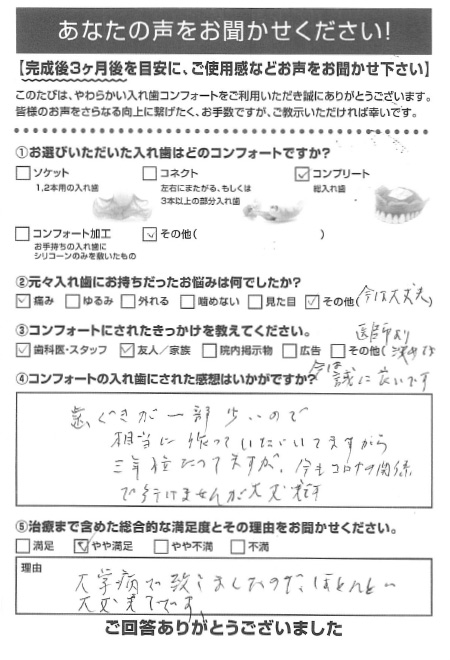 あなたの声をお聞かせください!
【完成後3ヶ月後を目安に、ご使用感などお声をお聞かせ下さい】
このたびは、やわらかい入れ歯コンフォートをご利用いただき誠にありがとうございます。
皆様のお声をさらなる向上に繋げたく、お手数ですが、ご教示いただければ幸いです。
①お選びいただいた入れ歯はどのコンフォートですか?
ソケット コネクト コンプリート
1,2本用の入れ歯 左右にまたがる、もしくは 総入れ歯
3本以上の部分入れ歯
コンフォート加工 その他( )
お手持ちの入れ歯に
シリコーンのみを敷いたもの
②元々入れ歯にお持ちだったお悩みは何でしたか?
痛み ゆるみ 外れる 噛めない 見た目 その他(今は大丈夫)
③コンフォートにされたきっかけを教えてください。
医師より
歯科医・スタッフ 友人/家族 院内掲示物 広告 その他(
今は誠に良いです
④コンフォートの入れ歯にされた感想はいかがですか?
歯ぐきが一部
相当に いただいてますから
三年位たってますが、今もコロナの関係
で行けませんが大丈夫です
⑤治療まで含めた総合的な満足度とその理由をお聞かせください。
満足 やや満足 やや不満 不満
理由
大学病 致しましたので、ほとんど
大丈夫です
ご回答ありがとうございました